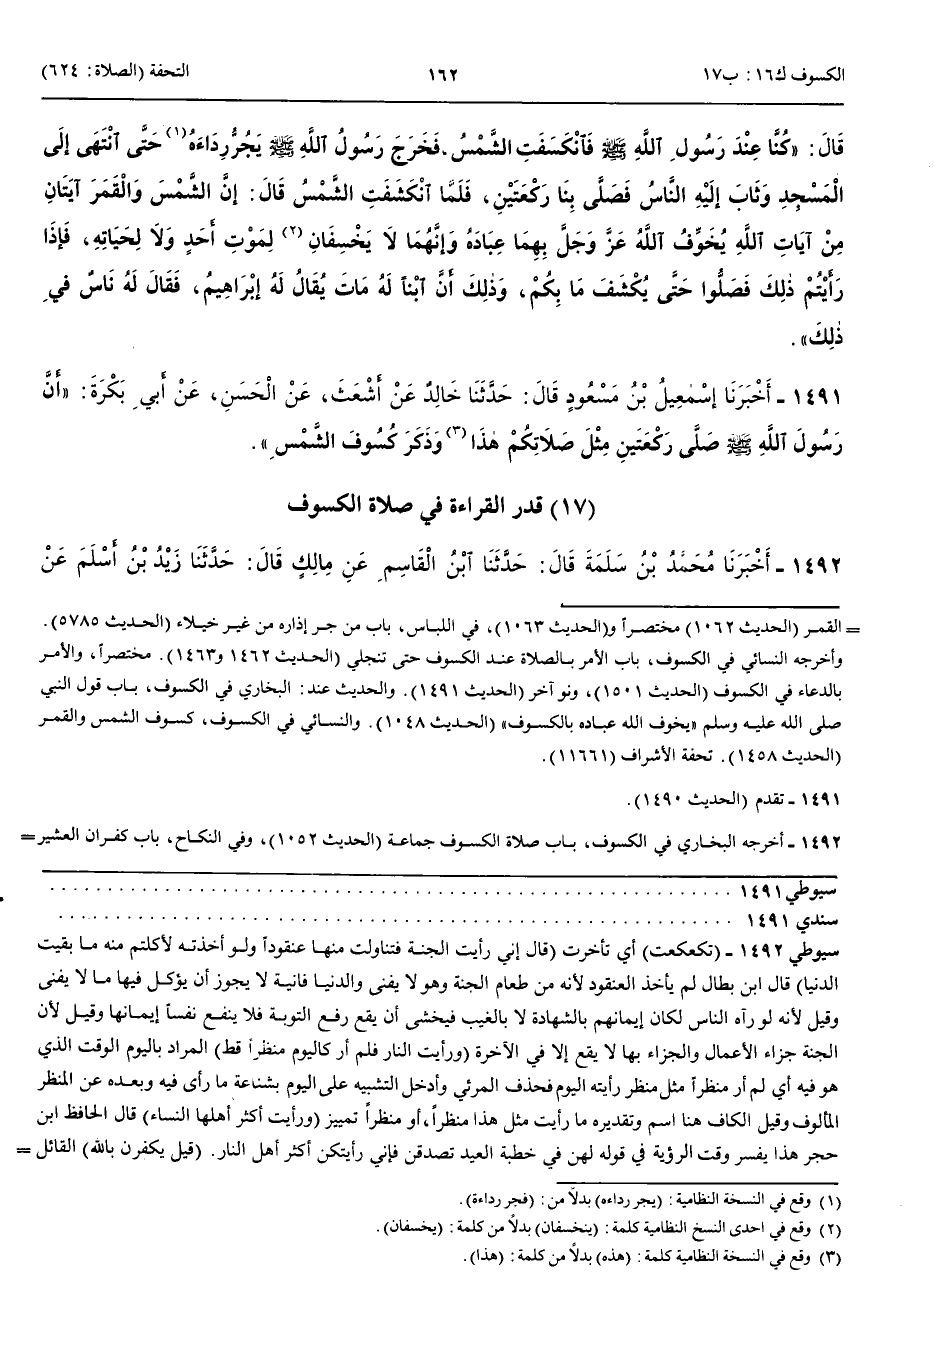 الكسوف ك١٦: ب١٧ ١٦٢ التحفة (الصلاة: ٦٢٤)
قَالَ: «كُنَّا عِنْدَ رَسُولِ ٱللَّهِ ﷺ فَٱنْكَسَفَتِ الشَّمْسُ، فَخَرَجَ رَسُولُ ٱللَّهِ ﷺ يَجُرُّ رِدَاءَهُ(١) حَتَّى ٱنْتَهَى إِلَى
الْمَسْجِدِ وَثَابَ إِلَيْهِ النَّاسُ فَصَلَّى بِنَا رَكْعَتَيْنِ، فَلَمَّا ٱنْكَشَفَتِ الشَّمْسُ قَالَ: إِنَّ الشَّمْسَ وَالْقَمَرَ آيَتَانِ
مِنْ آيَاتِ ٱللَّهِ يُخَوِّفُ ٱللَّهُ عَزَّ وَجَلَّ بِهِمَا عِبَادَهُ وَإِنَّهُمَا لَا يَخْسِفَانِ(٢) لِمَوْتِ أَحَدٍ وَلَا لِحَيَاتِهِ، فَإِذَا
رَأَيْتُمْ ذٰلِكَ فَصَلُّوا حَتَّى يُكْشَفَ مَا بِكُمْ، وَذٰلِكَ أَنَّ ٱبْناً لَهُ مَاتَ يُقَالُ لَهُ إِبْرَاهِيمُ، فَقَالَ لَهُ نَاسٌ فِي
ذٰلِكَ».
١٤٩١ - أَخْبَرَنَا إِسْمٰعِيلُ بْنُ مَسْعُودٍ قَالَ: حَدَّثَنَا خَالِدٌ عَنْ أَشْعَثَ، عَنْ الْحَسَنِ، عَنْ أَبِي بَكْرَةَ: «أَنَّ
رَسُولَ ٱللَّهِ ﷺ صَلَّى رَكْعَتَينِ مِثْلَ صَلَاتِكُمْ هٰذَا(٣) وَذَكَرَ كُسُوفَ الشَّمْسِ».
(١٧) قدر القراءة في صلاة الكسوف
١٤٩٢ - أَخْبَرَنَا مُحَمَّدُ بْنُ سَلَمَةَ قَالَ: حَدَّثَنَا ٱبْنُ الْقَاسِمِ عَنِ مالِكٍ قَالَ: حَدَّثَنَا زَيْدُ بْنُ أَسْلَمَ عَنْ
= القمر (الحديث ١٠٦٢) مختصراً و(الحديث ١٠٦٣)، في اللباس، باب من جر إذاره من غير خيلاء (الحديث ٥٧٨٥).
وأخرجه النسائي في الكسوف، باب الأمر بالصلاة عند الكسوف حتى تنجلي (الحديث ١٤٦٢ و١٤٦٣). مختصراً، والأمر
بالدعاء في الكسوف (الحديث ١٥٠١)، ونو آخر (الحديث ١٤٩١). والحديث عند: البخاري في الكسوف، باب قول النبي
صلى الله عليه وسلم «يخوف الله عباده بالكسوف» (الحديث ١٠٤٨). والنسائي في الكسوف، كسوف الشمس والقمر
(الحديث ١٤٥٨). تحفة الأشراف (١١٦٦١).
١٤٩١ - تقدم (الحديث ١٤٩٠).
١٤٩٢ - أخرجه البخاري في الكسوف، باب صلاة الكسوف جماعة (الحديث ١٠٥٢)، وفي النكاح، باب كفران العشير =
سيوطي ١٤٩١ ........................................
سندي ١٤٩١ ........................................
سيوطي ١٤٩٢ - (تكعكعت) أي تأخرت (قال إني رأيت الجنة فتناولت منها عنقوداً ولو أخذته لأكلتم منه ما بقيت
الدنيا) قال ابن بطال لم يأخذ العنقود لأنه من طعام الجنة وهو لا يفنى والدنيا فانية لا يجوز أن يؤكل فيها ما لا يفنى
وقيل لأنه لو رآه الناس لكان إيمانهم بالشهادة لا بالغيب فيخشى أن يقع رفع التوبة فلا ينفع نفساً إيمانها وقيل لأن
الجنة جزاء الأعمال والجزاء بها لا يقع إلا في الآخرة (ورأيت النار فلم أر كاليوم منظراً قط) المراد باليوم الوقت الذي
هو فيه أي لم أر منظراً مثل منظر رأيته اليوم فحذف المرئي وأدخل التشبيه على اليوم بشناعة ما رأى فيه وبعده عن المنظر
المألوف وقيل الكاف هنا اسم وتقديره ما رأيت مثل هذا منظراً، أو منظراً تمييز (ورأيت أكثر أهلها النساء) قال الحافظ ابن
حجر هذا يفسر وقت الرؤية في قوله لهن في خطبة العيد تصدقن فإني رأيتكن أكثر أهل النار. (قيل يكفرن بالله) القائل =
(١) وقع في النسخة النظامية: (يجر رداءه) بدلاً من: (فجر رداءة).
(٢) وقع في احدى النسخ النظامية كلمة: (ينخسفان) بدلاً من كلمة: (يخسفان).
(٣) وقع في النسخة النظامية كلمة: (هذه) بدلاً من كلمة: (هذا).